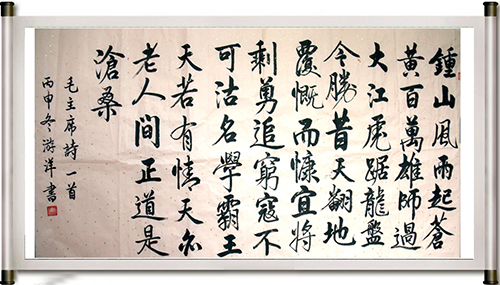 鍾山風雨起蒼
黃百萬雄師過
大江虎踞龍盤
今勝昔天翻地
覆慨而慷宜將
剩勇追窮寇不
可沽名學霸王
天若有情天亦
老人間正道是
滄桑
毛主席詩一首
丙申冬游洋書